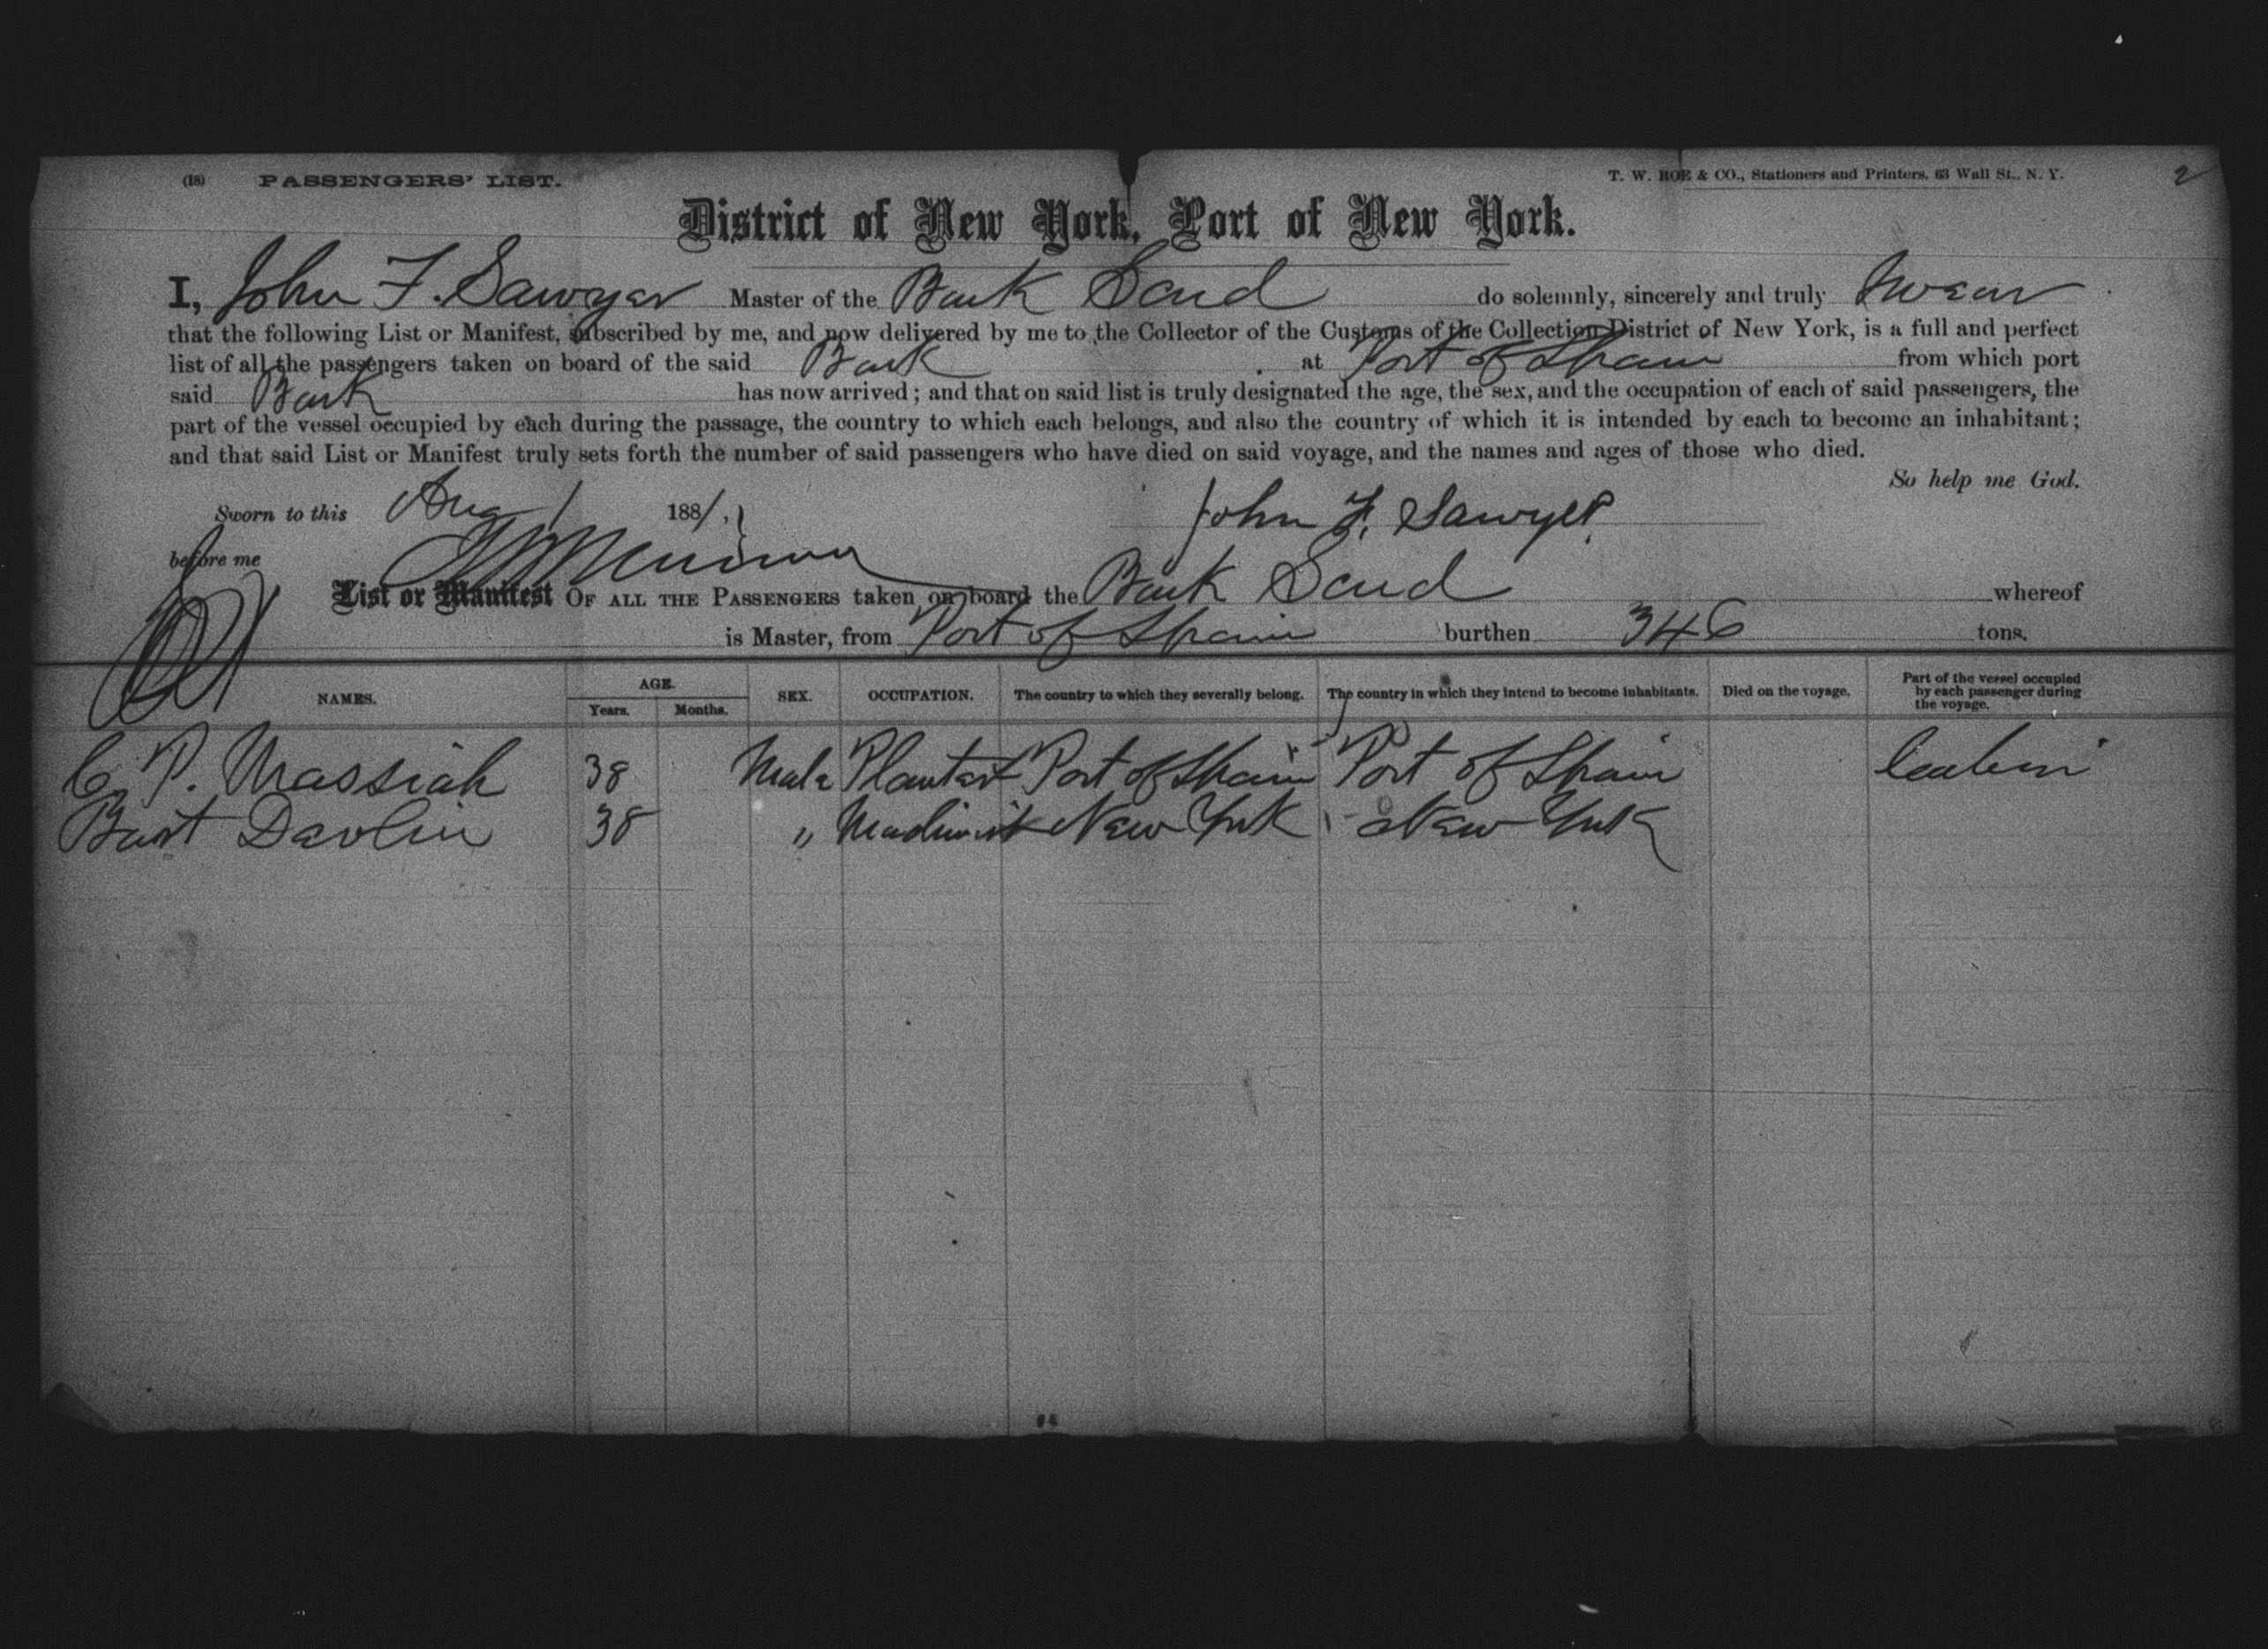 (18) PASSENGERS' LIST. T. W. ROE & CO., Stationers and Printers, 63 Wall St., N. Y. 2
District of New York, Port of New York.
I, John F. Sawyer Master of the Bark Scud do solemnly, sincerely and truly swear
that the following List or Manifest, subscribed by me, and now delivered by me to the Collector of the Customs of the Collection District of New York, is a full and perfect
list of all the passengers taken on board of the said Bark at Port of Spain from which port
said Bark has now arrived; and that on said list is truly designated the age, the sex, and the occupation of each of said passengers, the
part of the vessel occupied by each during the passage, the country to which each belongs, and also the country of which it is intended by each to become an inhabitant;
and that said List or Manifest truly sets forth the number of said passengers who have died on said voyage, and the names and ages of those who died.
So help me God.
Sworn to this Aug 1 1881, John F. Sawyer.
before me
List or Manifest OF ALL THE PASSENGERS taken on board the Bark Scud whereof
is Master, from Port of Spain burthen 346 tons.
NAMES. AGE. Years. Months. SEX. OCCUPATION. The country to which they severally belong. The country in which they intend to become inhabitants. Died on the voyage. Part of the vessel occupied by each passenger during the voyage.
C. P. Massiah 38 Male Planter Port of Spain Port of Spain Cabin
Bart Davlin 38 " New York New York